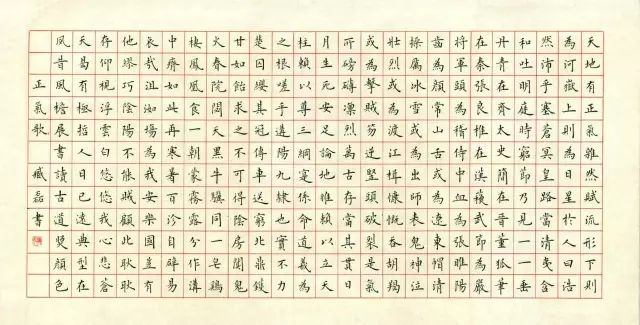 天地有正氣雜然賦流形下則
為河嶽上則為日星於人曰浩
然沛乎塞蒼冥皇路當清夷含
和吐明庭時窮節乃見一一垂
丹青在齊太史簡在晉董狐筆
在秦張良椎在漢蘇武節為嚴
將軍頭為嵇侍中血為張睢陽
齒為顏常山舌或為遼東帽清
操厲冰雪或為出師表鬼神泣
壯烈或為渡江楫慷慨吞胡羯
或為擊賊笏逆豎頭破裂是氣
所磅礴凜烈萬古存當其貫日
月生死安足論地維賴以立天
柱賴以尊三綱實係命道義為
之根嗟予遘陽九隸也實不力
楚囚纓其冠傳車送窮北鼎鑊
甘如飴求之不可得陰房闃鬼
火春院閟天黑牛驥同一皂鷄
棲鳳凰食一朝蒙霧露分作溝
中瘠如此再寒暑百沴自辟易
哀哉沮洳場為我安樂國豈有
他繆巧陰陽不能賊顧此耿耿
存仰視浮雲白悠悠我心悲蒼
天曷有極哲人日已遠典型在
夙昔風檐展書讀古道照顏色
正氣歌 臧磊書